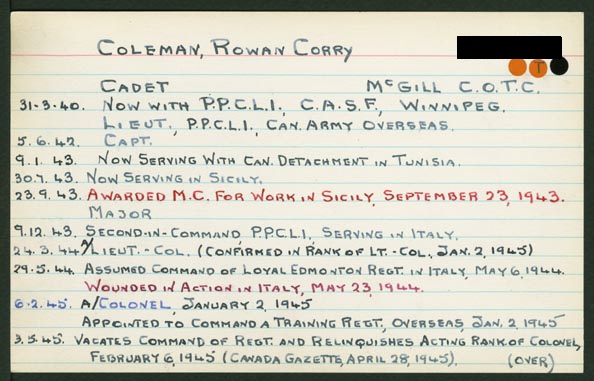 COLEMAN, ROWAN CORRY
T
CADET McGILL C.O.T.C.
31-3-40. NOW WITH P.P.C.L.I., C.A.S.F., WINNIPEG.
LIEUT., P.P.C.L.I., CAN. ARMY OVERSEAS.
5.6.42. CAPT.
9.1.43. NOW SERVING WITH CAN. DETACHMENT IN TUNISIA.
30.7.43. NOW SERVING IN SICILY.
23.9.43. AWARDED M.C. FOR WORK IN SICILY, SEPTEMBER 23, 1943.
MAJOR
9.12.43. SECOND-IN-COMMAND P.P.C.L.I., SERVING IN ITALY.
24.3.44 A/LIEUT.-COL. (CONFIRMED IN RANK OF LT.-COL., JAN. 2, 1945)
29.5.44. ASSUMED COMMAND OF LOYAL EDMONTON REGT. IN ITALY, MAY 6, 1944.
WOUNDED IN ACTION IN ITALY, MAY 23, 1944.
6.2.45. A/COLONEL, JANUARY 2, 1945
APPOINTED TO COMMAND A TRAINING REGT., OVERSEAS, JAN. 2, 1945
3.5.45. VACATES COMMAND OF REGT. AND RELINQUISHES ACTING RANK OF COLONEL,
FEBRUARY 6, 1945 (CANADA GAZETTE, APRIL 28, 1945). (OVER)